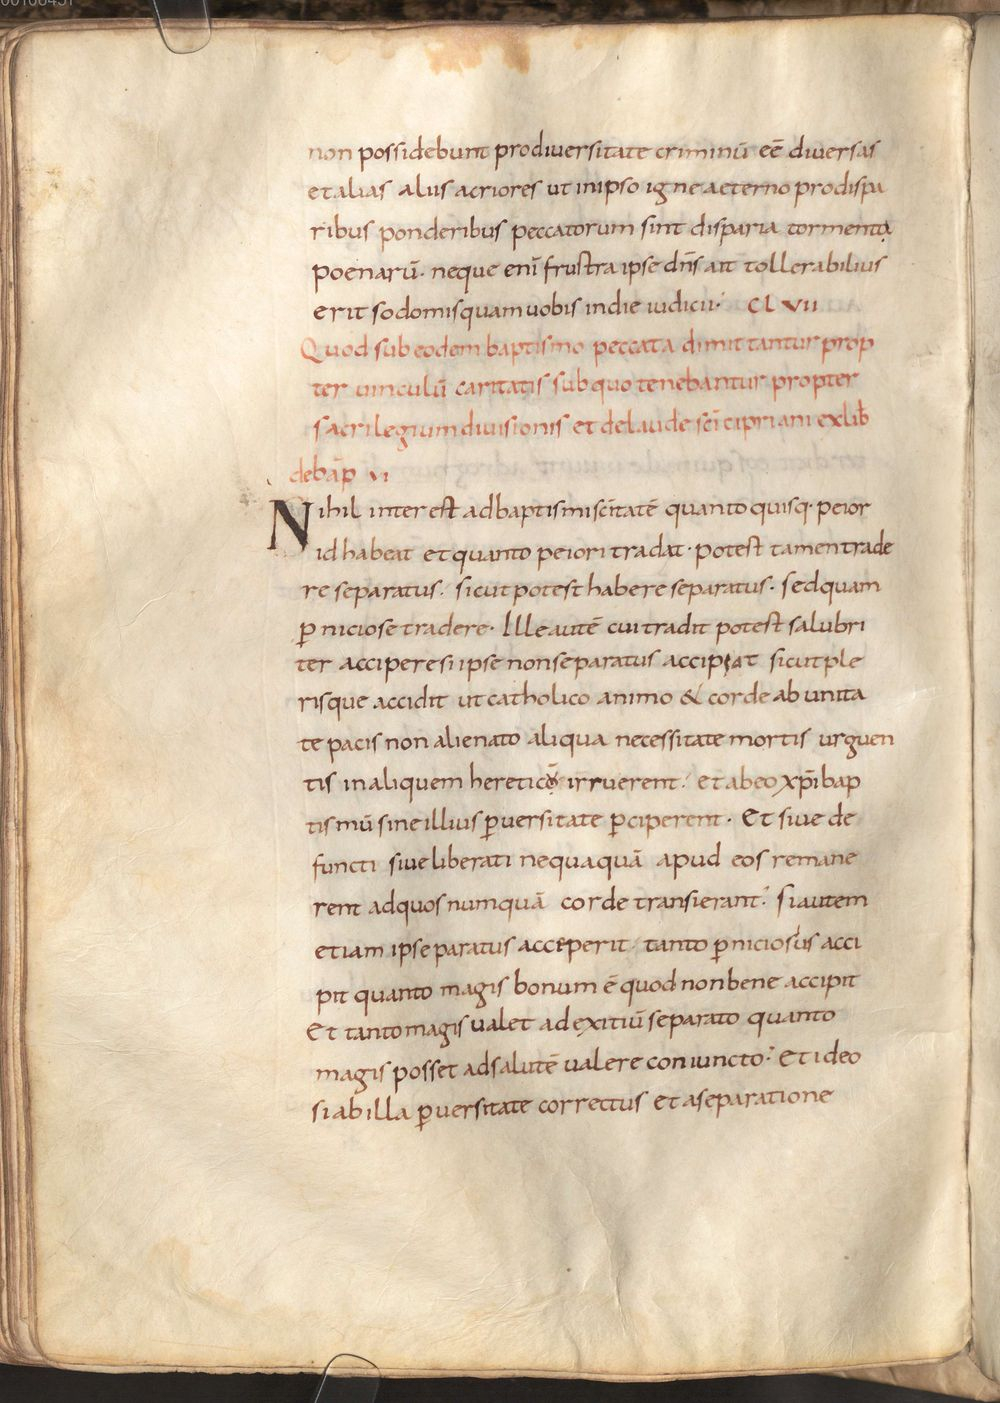 non possidebunt pro diuersitate criminū eē diuersas
et alias alias acriores ut in ipso igne aeterno pro dispa
ribus ponderibus peccatorum sint disparia tormenta
poenarū. neque enī frustra ipse dn̄s ait tollerabilius
erit sodomis quam uobis in die iudicii. CLVII
Quod sub eodem baptismo peccata dimittantur prop
ter uinculū caritatis sub quo tenebantur propter
sacrilegium diuisionis et de laude sc̄i cipriani ex lib̄
de bap̄ VI
Nihil interest ad baptismi sc̄itatē quanto quisq· peior
id habeat et quanto peiori tradat· potest tamen trade
re separatus. sicut potest habere separatus. sed quam
p̄niciose tradere. Ille autē cui tradit potest salubri
ter accipere si ipse non separatus accipiat sicut ple
risque accidit ut catholico animo & corde ab unita
te pacis non alienato aliqua necessitate mortis urguen
tis in aliquem hereticū irruerent. et ab eo xp̄i bap
tismū sine illius p̄uersitate p̄ciperent. Et siue de
functi siue liberati nequaquā apud eos remane
rent ad quos numquā corde transierant. si autem
etiam ipse paratus acceperit tanto p̄niciosius acci
pit quanto magis bonum ē quod non bene accipit
Et tanto magis ualet ad exitiū separato quanto
magis posset ad salutē ualere coniuncto. Et ideo
si ab illa p̄uersitate correctus et a separatione